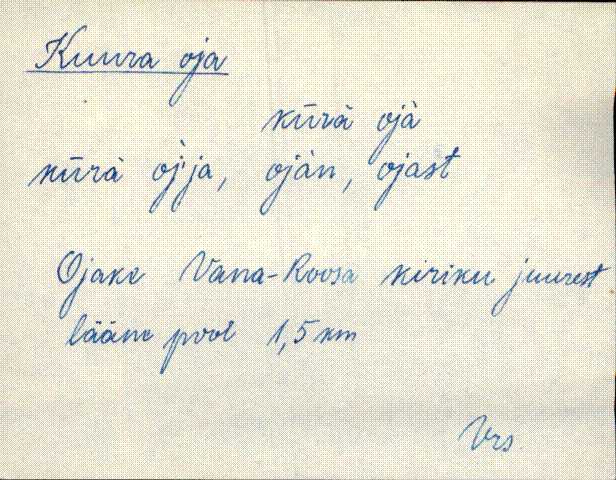 Kuura oja
kūrà ojà
kūrà òj̀ja, ojàn, ojast
Ojake Vana-Roosa kiriku juurest
lääne pool 1,5 km
Vrs.